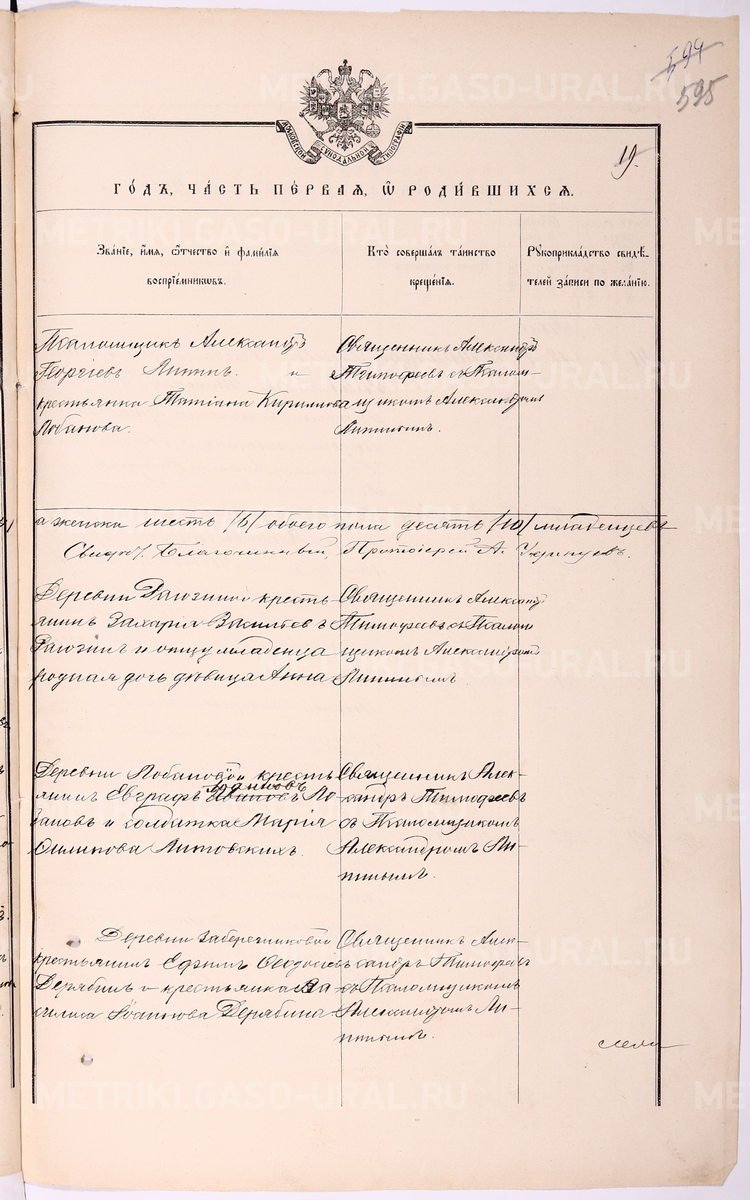 594
595
МОСКОВСКОЙ СѴНОДАЛЬНОЙ ТИПОГРАФІИ
19.
ГОДЪ, ЧАСТЬ ПЕРВАЯ, Ѿ РОДИВШИХСЯ.
Званіе, имя, отчество и фамилія воспріемниковъ.
Кто совершалъ таинство крещенія.
Рукоприкладство свидѣтелей записи по желанію.
Псаломщикъ Александръ
Георгіевъ и
крестьянка Татіана Кирилова
Лобанова.
Священникъ Александръ
Тимофеевъ съ Псалом-
щикомъ Александромъ
а женска шесть /6/ обоего пола десять /10/ младенцевъ
Благочинный, Протоіерей А.
Деревни крестья-
нинъ Захарія Василіевъ
и отцу младенца
родная дочь дѣвица Анна
Священникъ Александръ
Тимофеевъ съ Псалом-
щикомъ Александромъ
Деревни Лобановой кресть-
янинъ Евграфъ Ивановъ Ло-
бановъ и солдатка Марія
Литовскихъ.
Священникъ Алек-
сандръ Тимофеевъ
съ Псаломщикомъ
Александромъ
Деревни
крестьянинъ Ефимъ Ѳеодосіевъ
Дерябинъ и крестьянка Ва-
силиса Дерябина
Священникъ Алек-
сандръ Тимофеевъ
съ Псаломщикомъ
Александромъ
METRIKI.GASO-URAL.RU